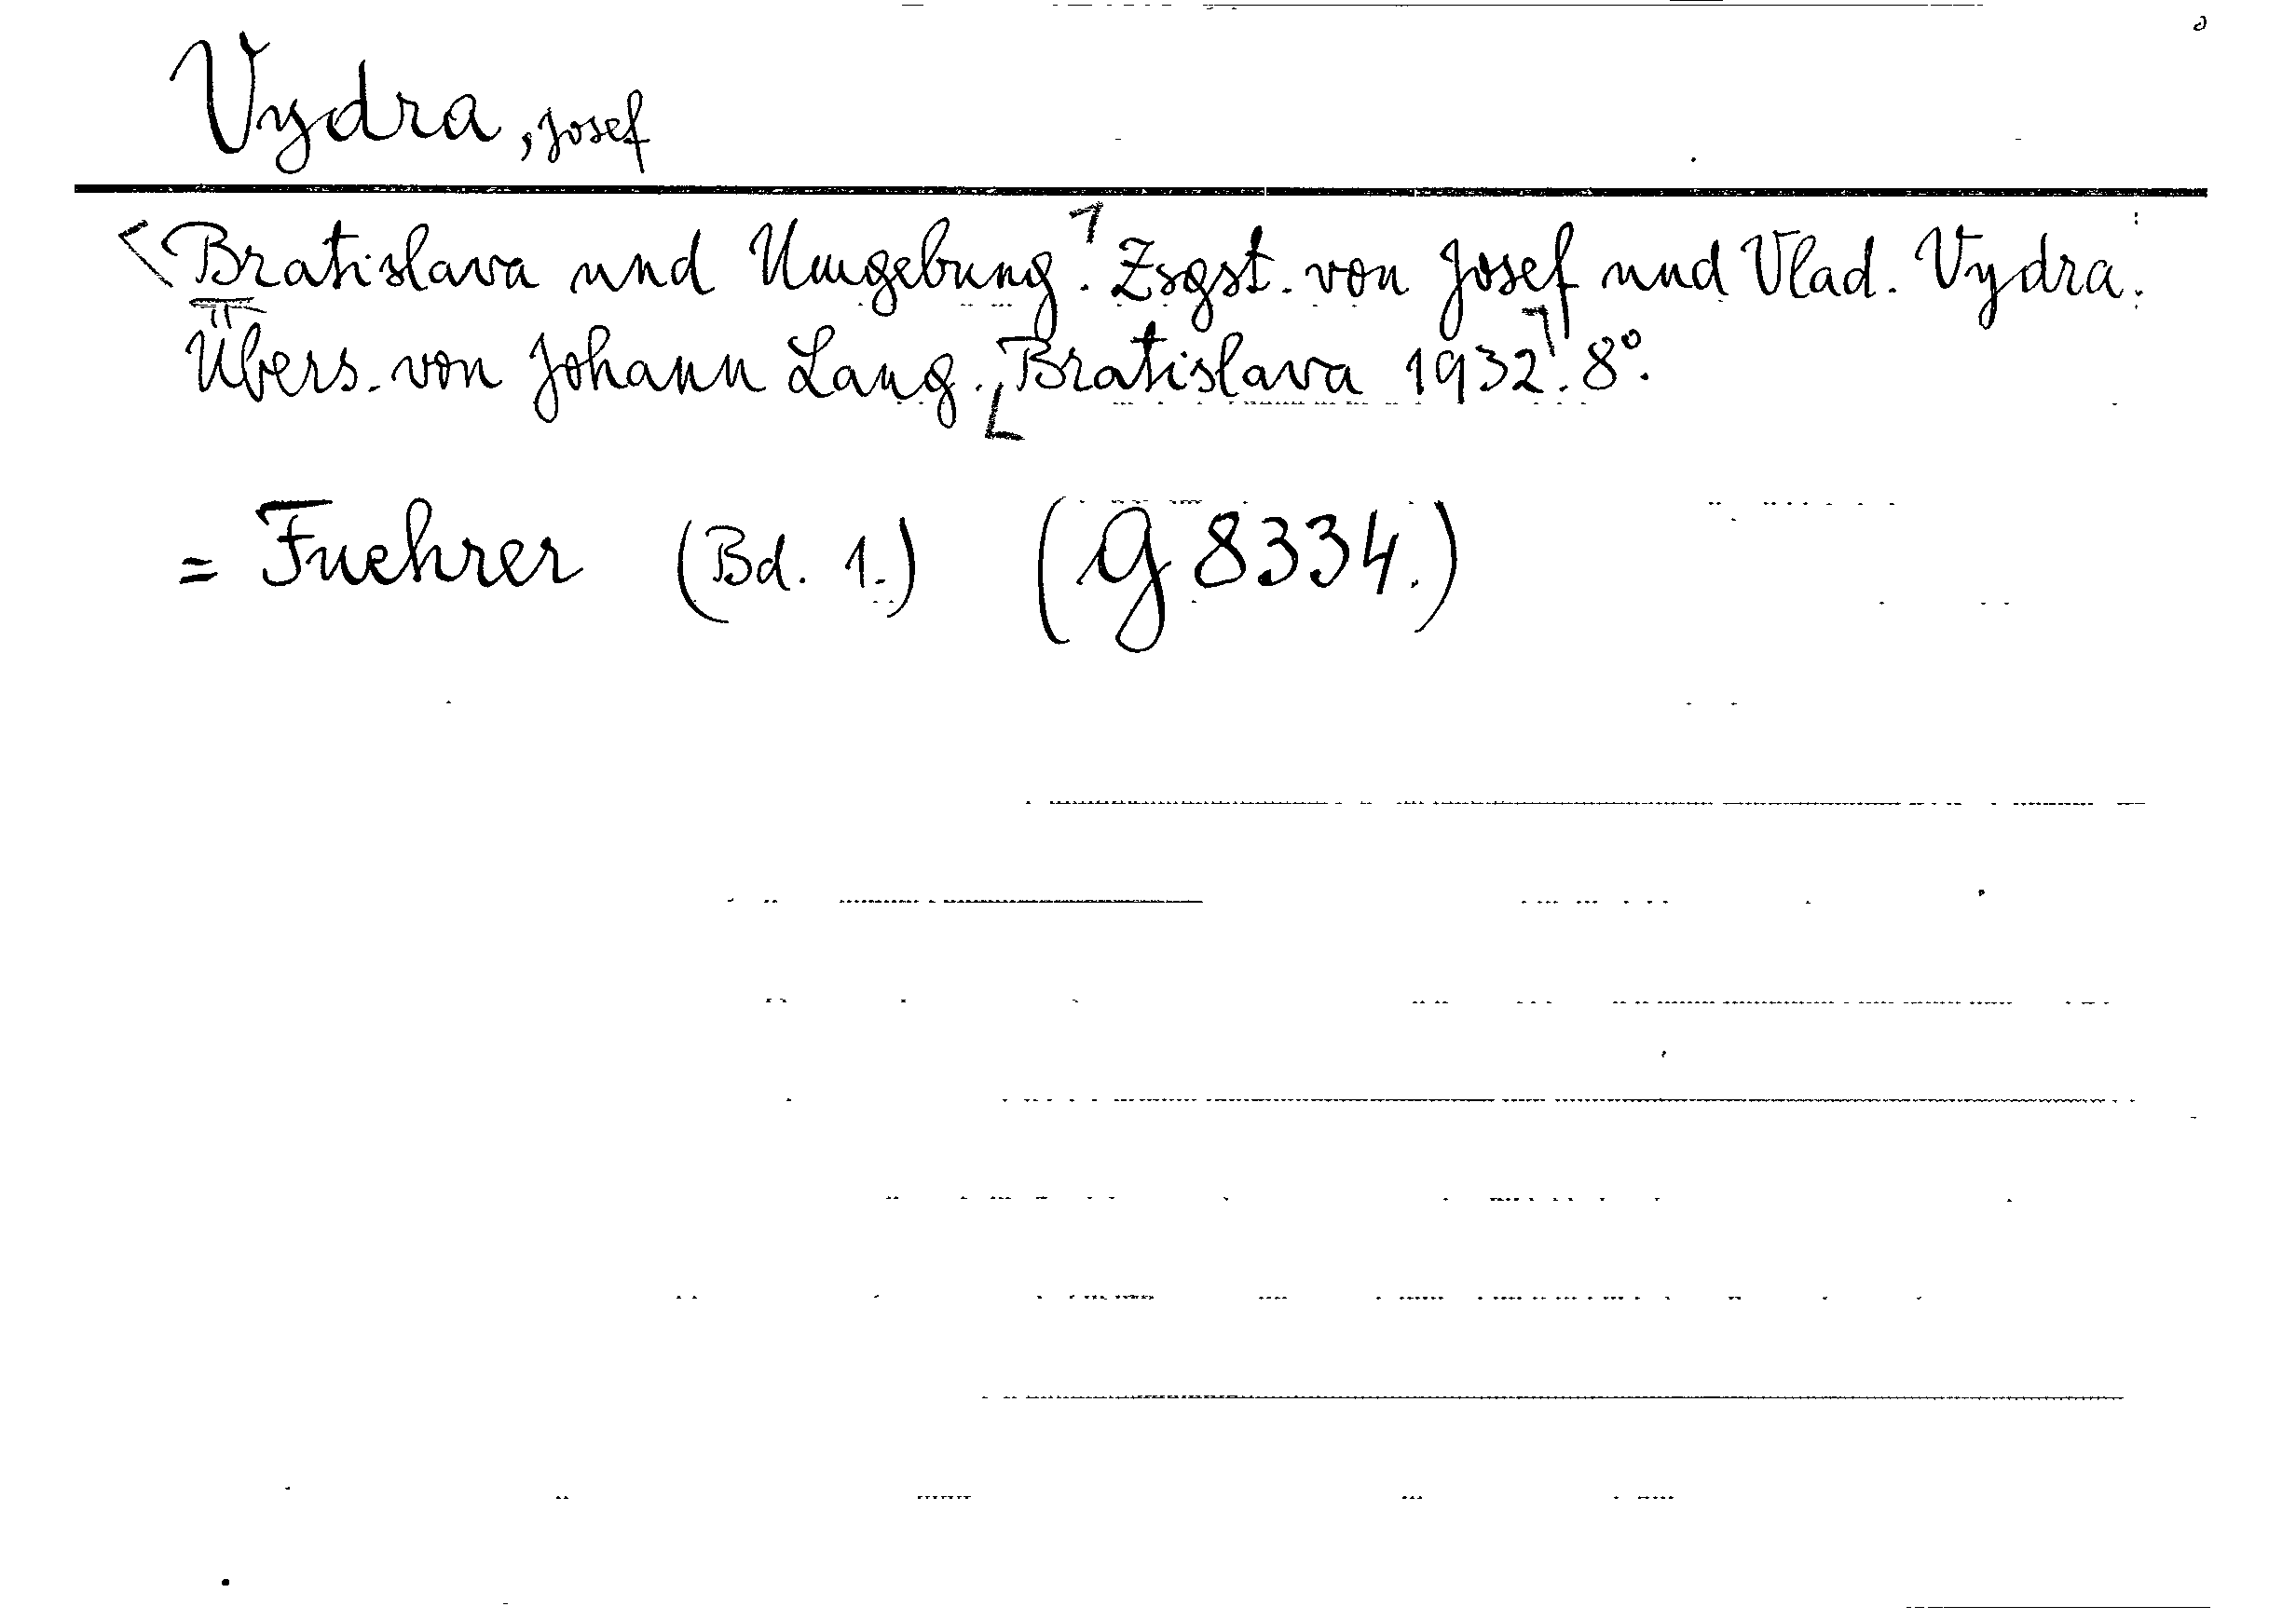 Vydra, Josef
<Bratislava und Umgebung.> Zsgst. von Josef und Vlad. Vydra.
Übers. von Johann Lang. [Bratislava 1932]. 8°.
= Fuehrer (Bd. 1.) (G 8334.)